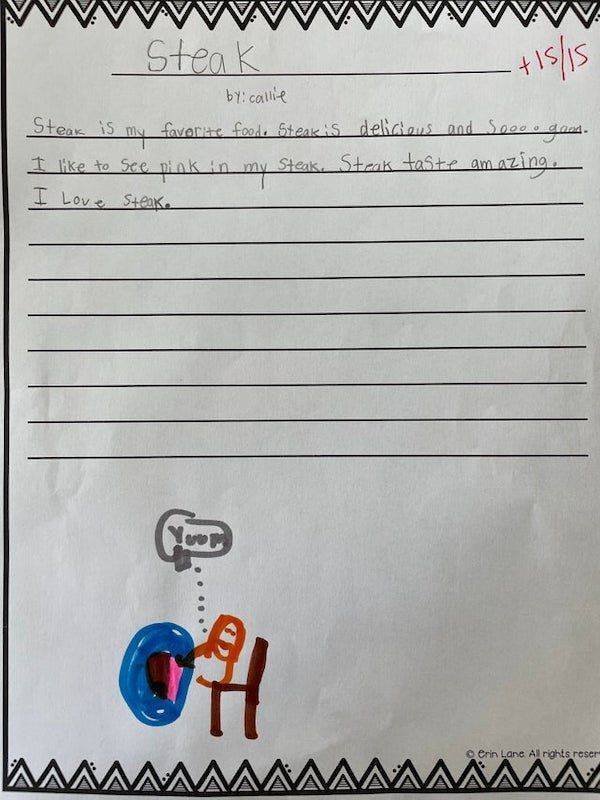 Steak
+15/15
by: callie
Steak is my favorite food. Steak is delicious and Soooo good.
I like to See pink in my Steak. Steak taste amazing.
I Love Steak.
Yuum
© Erin Lane All rights reser